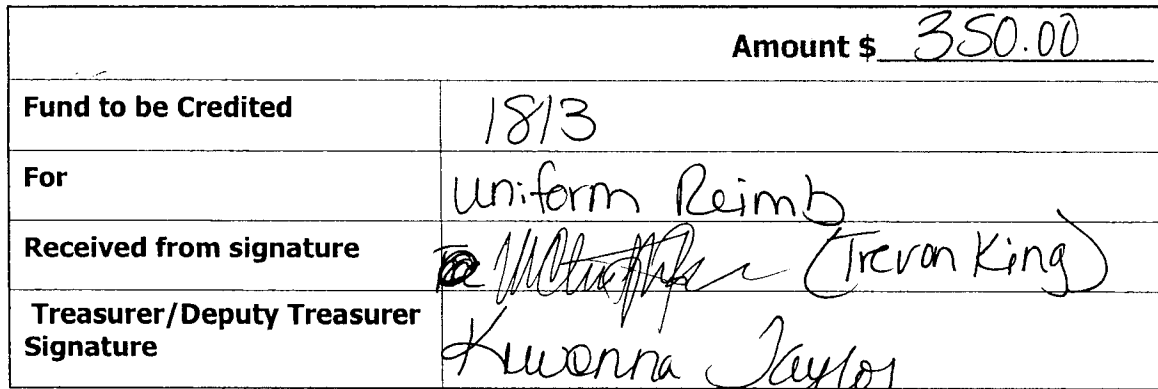 Amount $ 350.00
Fund to be Credited 1813
For uniform Reimb
Received from signature (Trevon King)
Treasurer/Deputy Treasurer
Signature Kuwanna Taylor